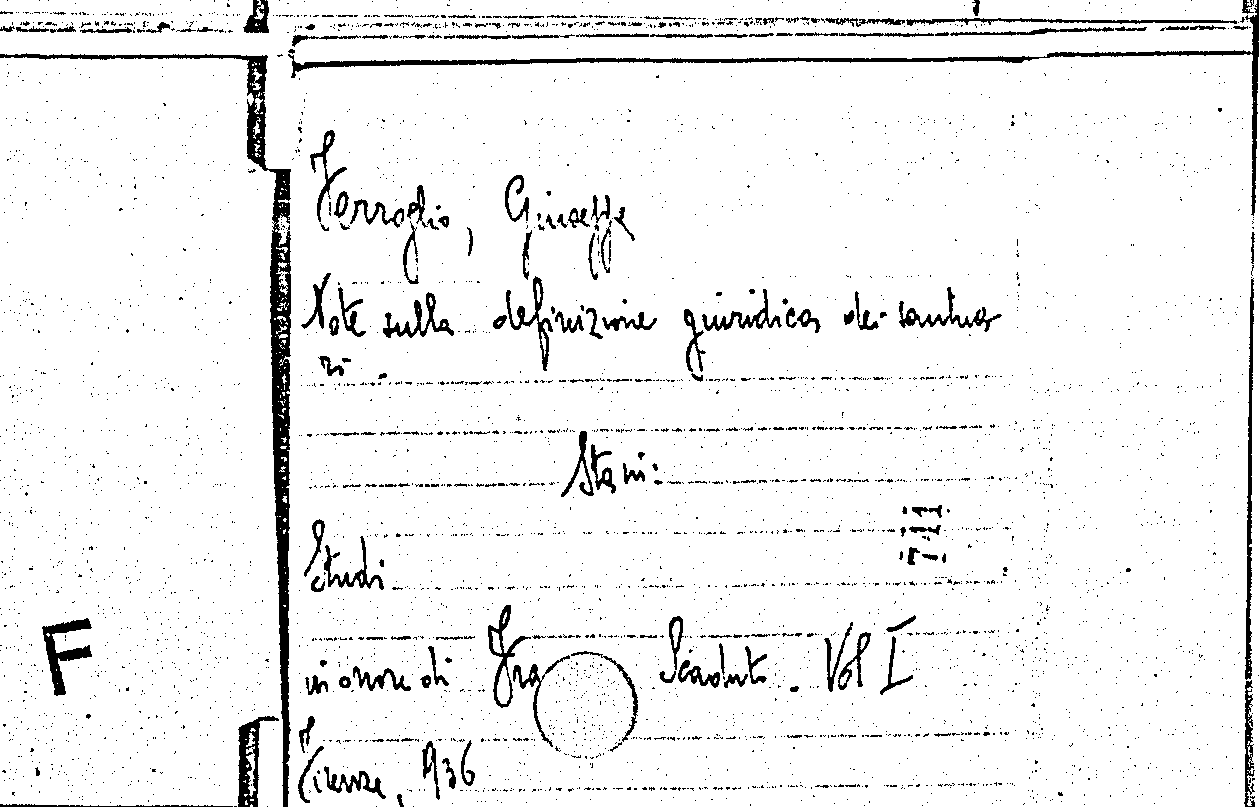 Ferroglio, Giuseppe
Note sulla definizione giuridica dei santua
ri.
Sta in:
711
Studi
in onore di Fra Scaduto. Vol I
Firenze, 936
F